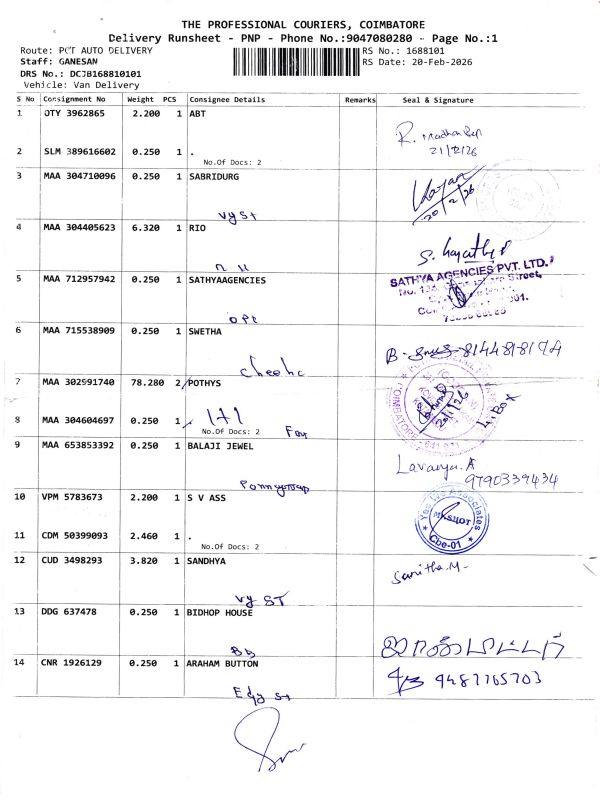 THE PROFESSIONAL COURIERS, COIMBATORE
Delivery Runsheet - PNP - Phone No.:9047080280 - Page No.:1
Route: PCT AUTO DELIVERY
RS No.: 1688101
Staff: GANESAN
RS Date: 20-Feb-2026
DRS No.: DCJB168810101
Vehicle: Van Delivery
S No Consignment No Weight PCS Consignee Details Remarks Seal & Signature
1 OTY 3962865 2.200 1 ABT
R. Madhan
21/2/26
2 SLM 389616602 0.250 1 .
No.Of Docs: 2
3 MAA 304710096 0.250 1 SABRIDURG
20/2/26
Vy St
4 MAA 304405623 6.320 1 RIO
5 MAA 712957942 0.250 1 SATHYAAGENCIES
SATHYA AGENCIES PVT. LTD.
Street,
opp
6 MAA 715538909 0.250 1 SWETHA
7 MAA 302991740 78.280 2 POTHYS
COIMBATORE
20/2/26
1+1
4. BOX
8 MAA 304604697 0.250 1
No.Of Docs: 2
9 MAA 653853392 0.250 1 BALAJI JEWEL
Lavanya. A
9790339434
10 VPM 5783673 2.200 1 S V ASS
Associates
Cbe-01
11 CDM 50399093 2.460 1 .
No.Of Docs: 2
12 CUD 3498293 3.820 1 SANDHYA
Sanitha. M-
Vy ST
13 DDG 637478 0.250 1 BIDHOP HOUSE
BB
14 CNR 1926129 0.250 1 ARAHAM BUTTON
9487765703
Edy St